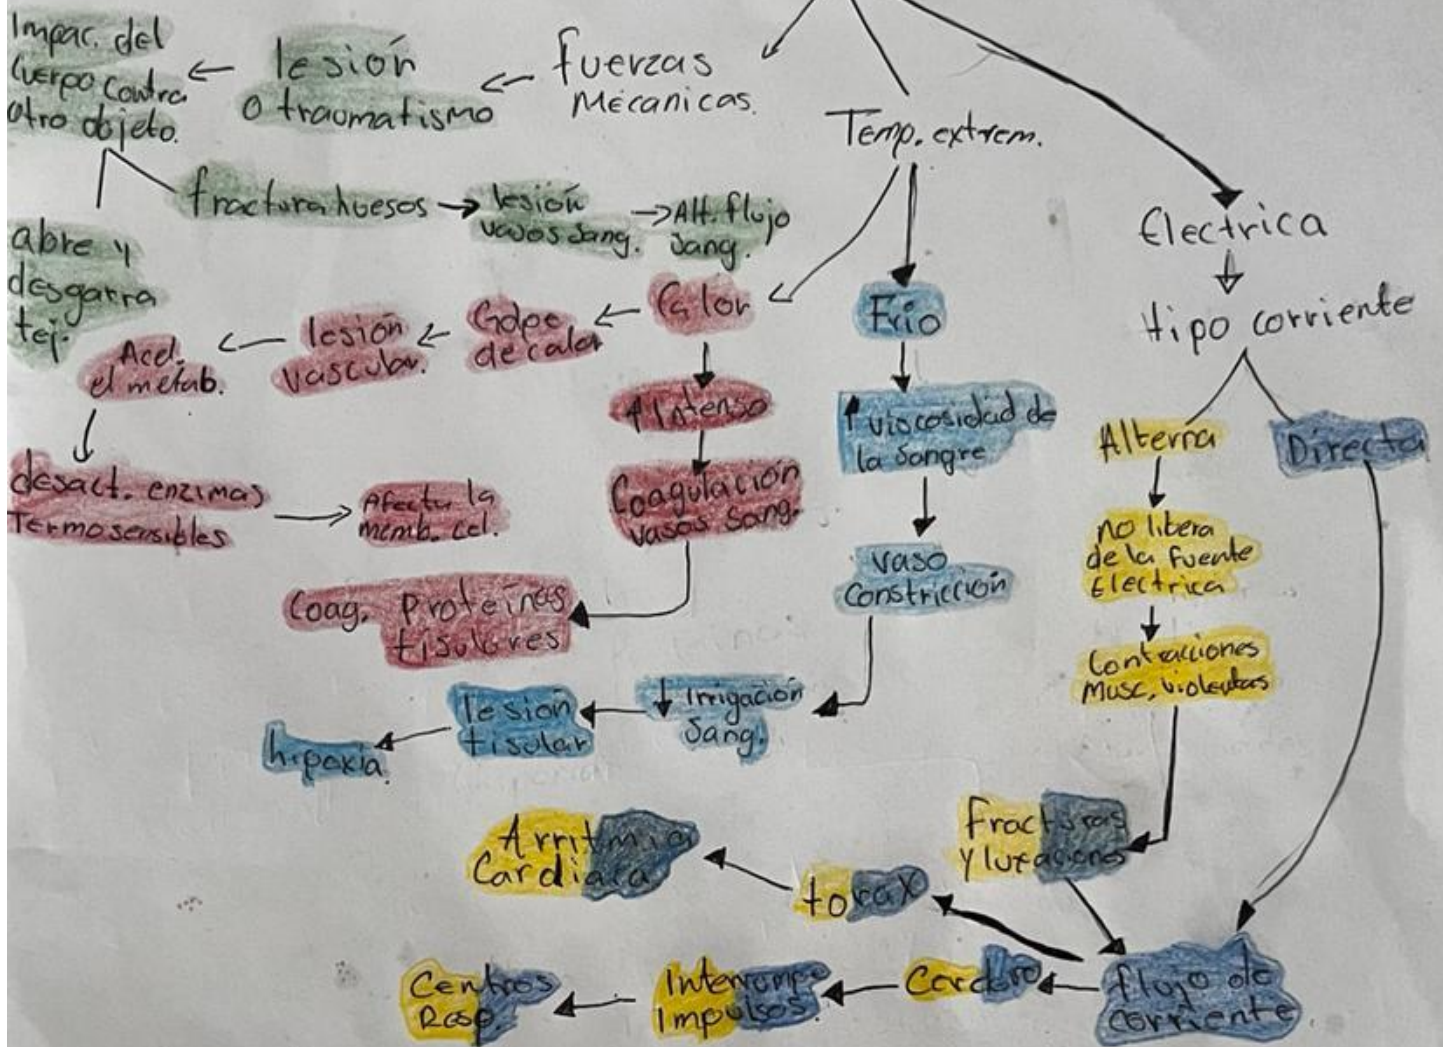 Impac. del
Cuerpo contra
otro objeto.
lesión
o traumatismo
fuerzas
Mecanicas.
Temp. extrem.
fractura huesos
lesión
vasos sang.
Alt. flujo
sang.
abre y
desgarra
tej.
Electrica
tipo corriente
Calor
Golpe
de calor
lesión
vascular.
Acel.
el metab.
desact. enzimas
Termosensibles
Afecta la
memb. cel.
↑ Intenso
Coagulación
vasos sang.
Coag. proteínas
tisulares
Frio
↑ viscosidad de
la sangre
vaso
constricción
↓ Irrigación
sang.
lesión
tisular
hipoxia.
Alterna
Directa
no libera
de la fuente
Electrica
Contracciones
Musc. violentas
Fracturas
y luxaciones
flujo de
corriente
torax
Arritmia
Cardiaca
Interrumpe
Impulsos.
Centros
Resp.